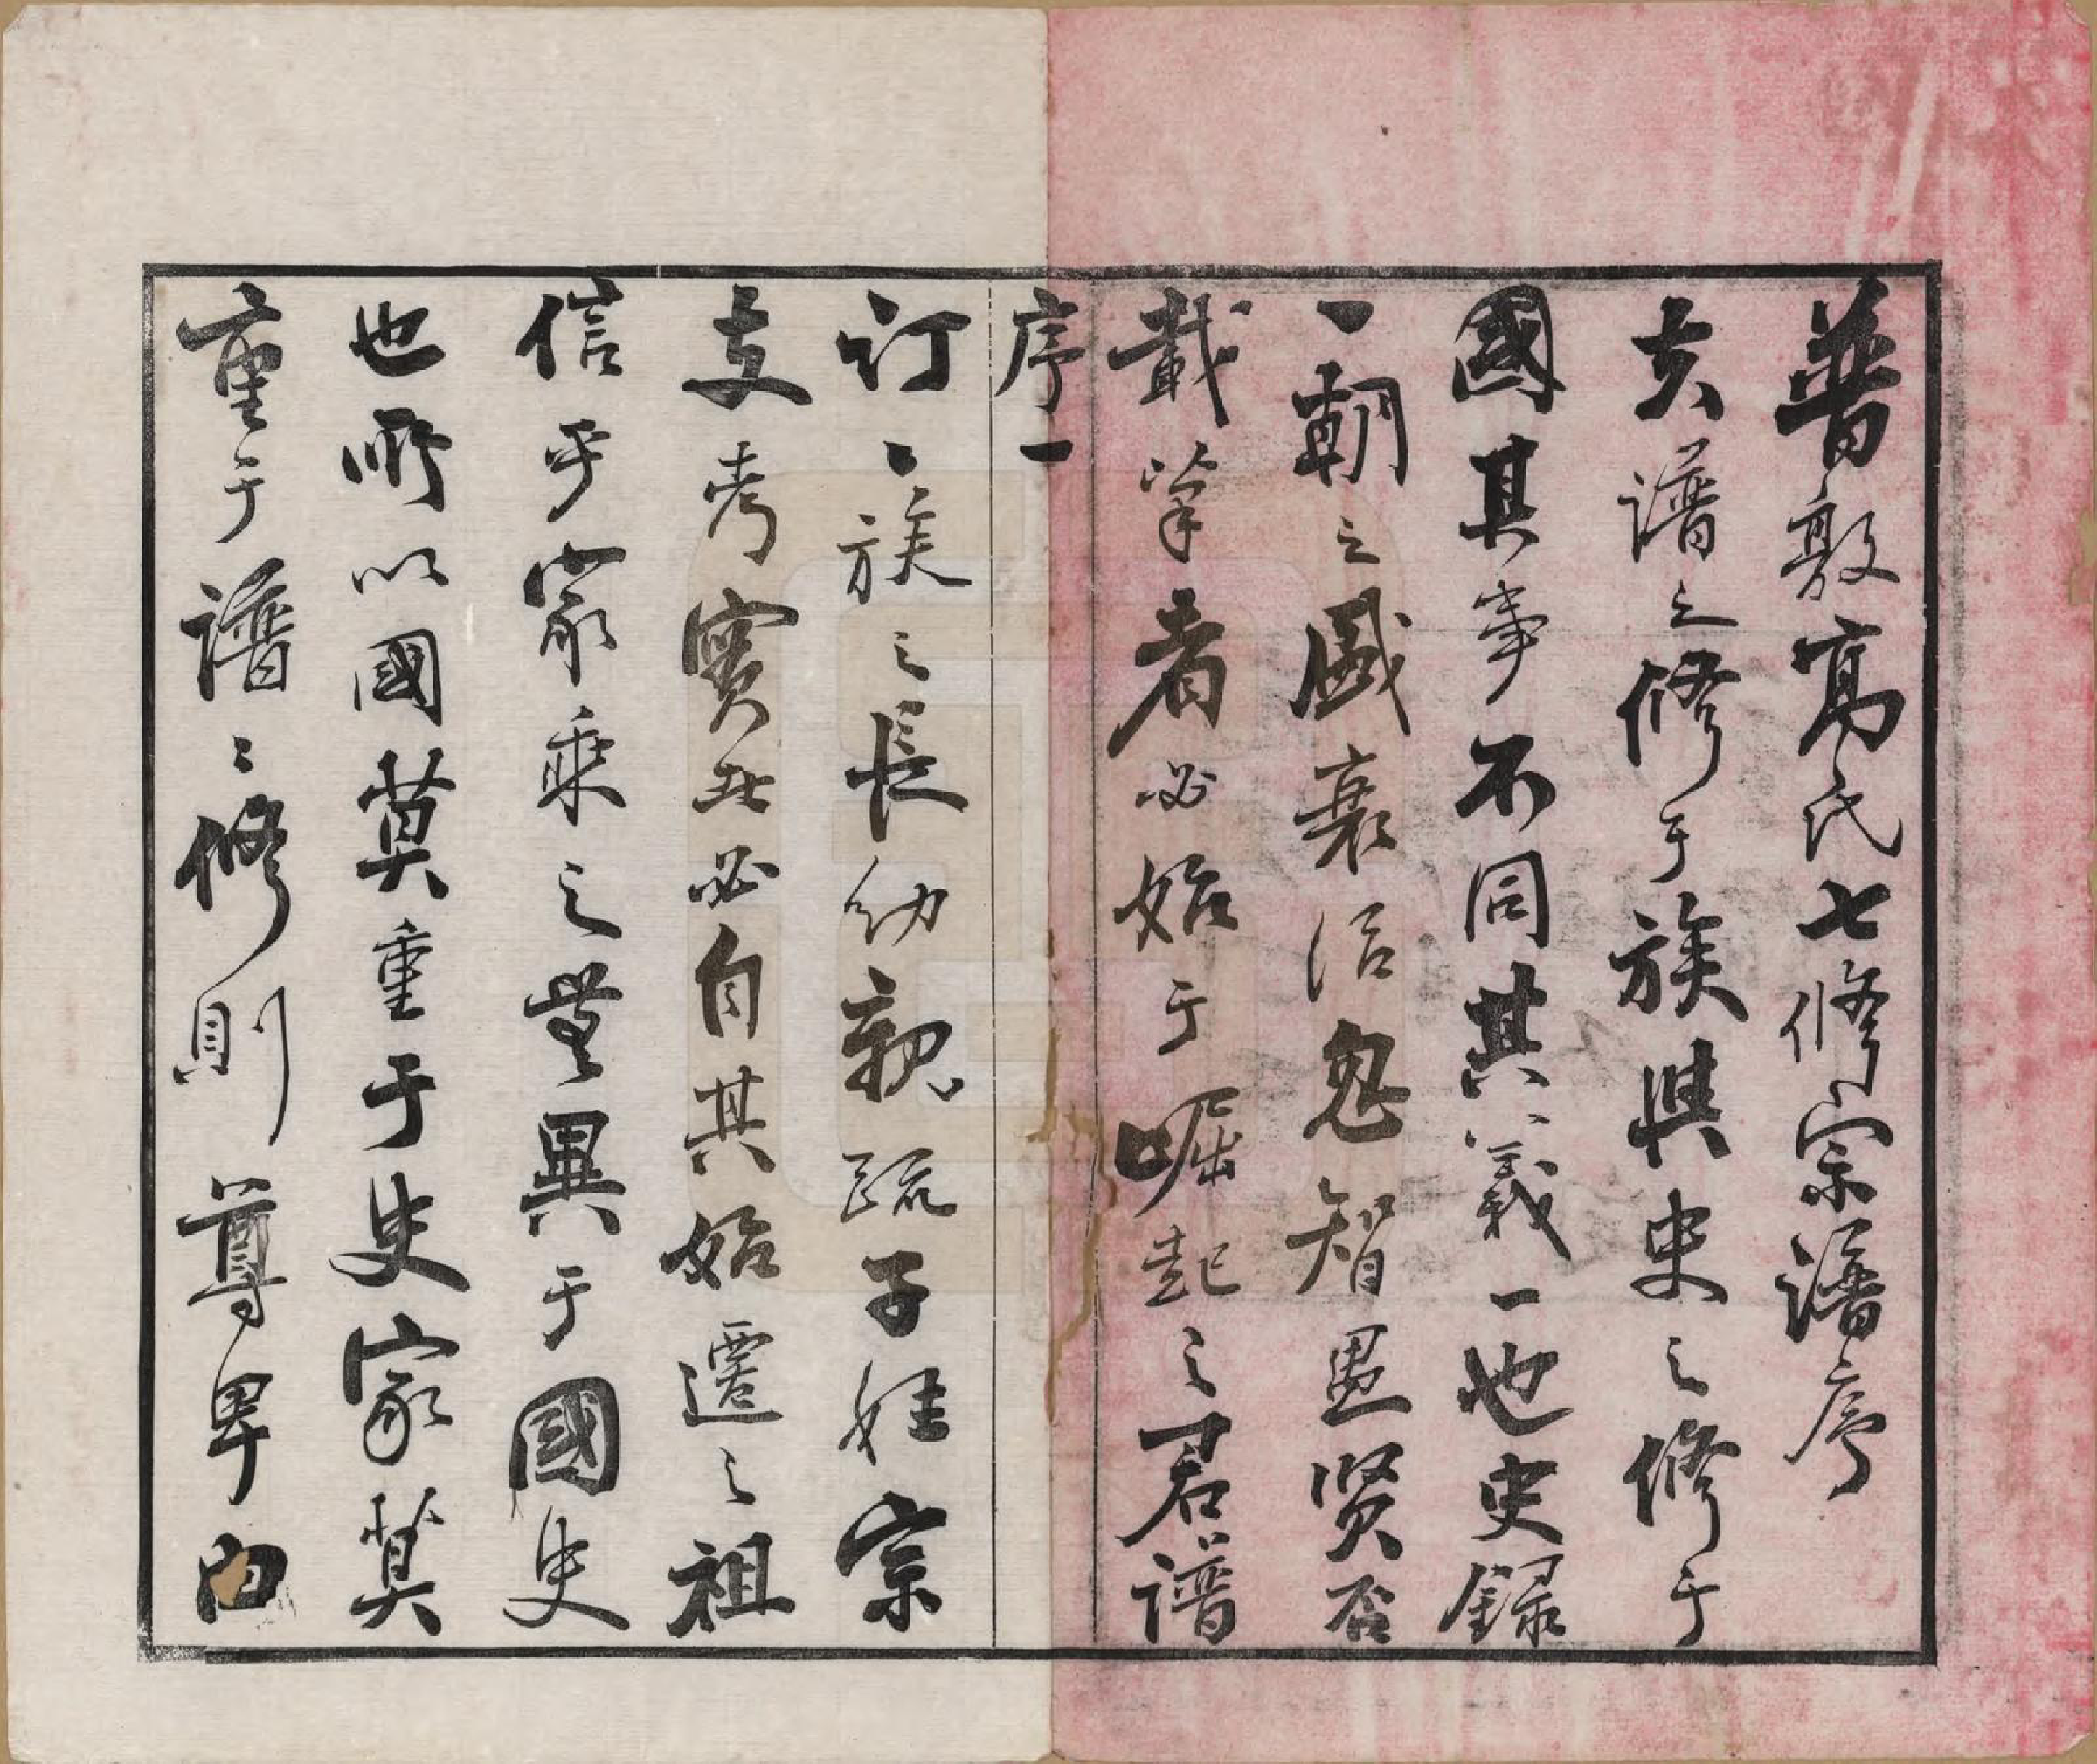 普敦高氏七修宗譜序
夫譜之修于族與史之修于
國其事不同其義一也史錄
一朝之盛衰治忽智愚賢否
載筆者必始于崛起之君譜
序一
訂一族之長幼親疏子姓宗
支考實北必自其始遷之祖
信乎家乘之無異于國史
也所以國莫重于史家莫
重于譜譜修則尊卑由